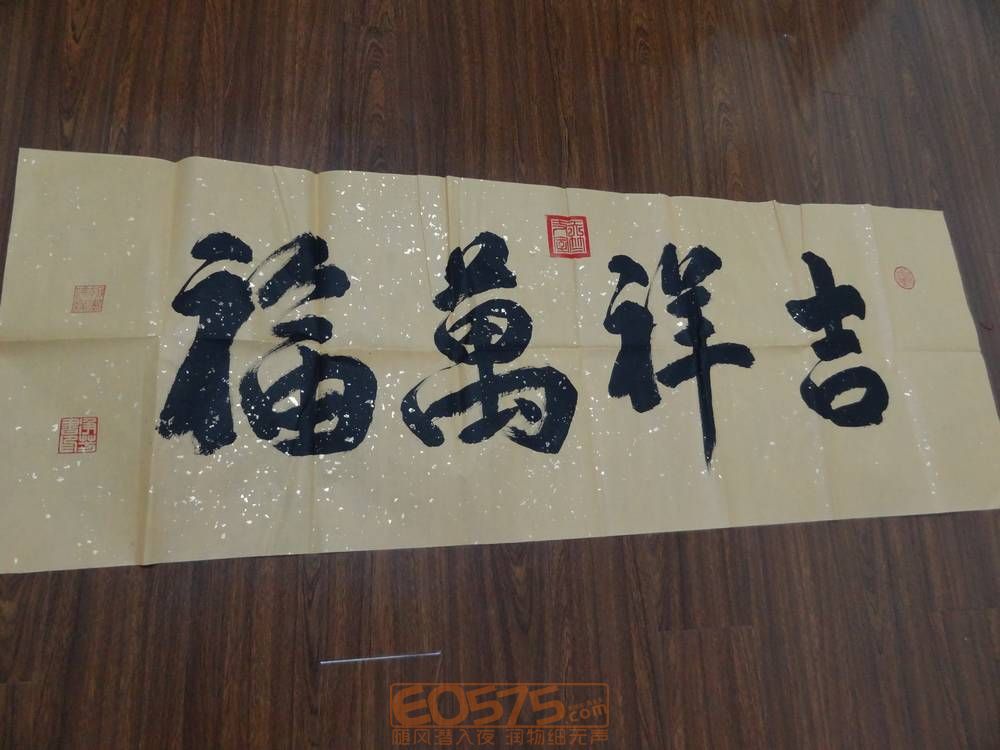 吉祥萬福
E0575.com
随风潜入夜 润物细无声